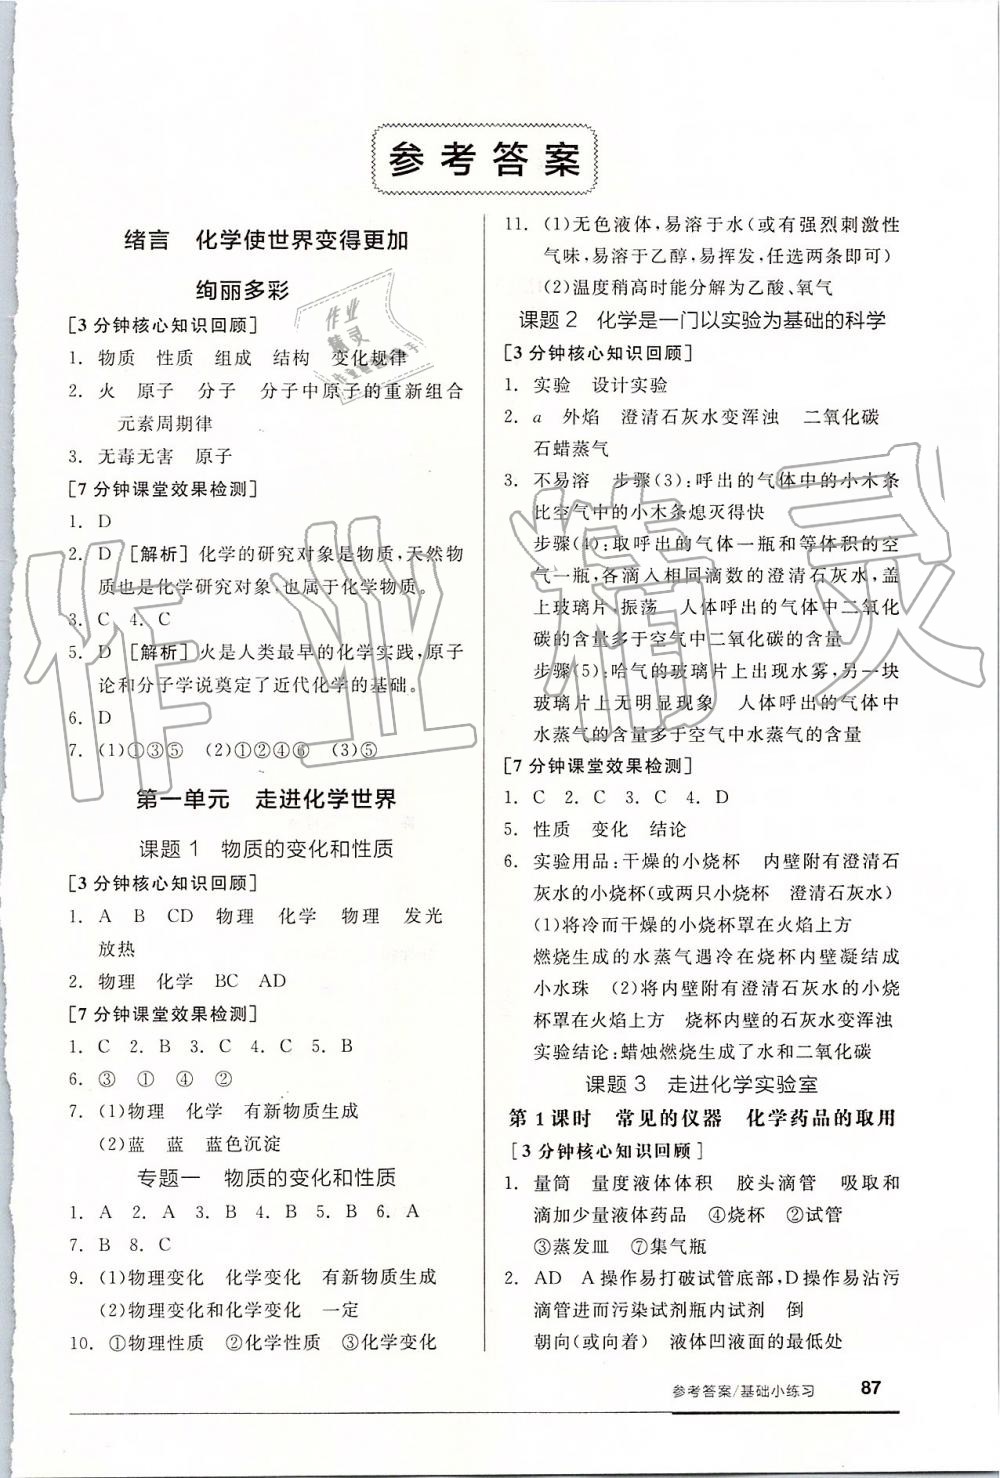 参考答案
绪言 化学使世界变得更加
绚丽多彩
[3分钟核心知识回顾]
1. 物质 性质 组成 结构 变化规律
2. 火 原子 分子 分子中原子的重新组合
元素周期律
3. 无毒无害 原子
[7分钟课堂效果检测]
1. D
2. D [解析]化学的研究对象是物质,天然物
质也是化学研究对象,也属于化学物质。
3. C 4. C
5. D [解析]火是人类最早的化学实践,原子
论和分子学说奠定了近代化学的基础。
6. D
7. (1)①③⑤ (2)①②④⑥ (3)⑤
第一单元 走进化学世界
课题1 物质的变化和性质
[3分钟核心知识回顾]
1. A B CD 物理 化学 物理 发光
放热
2. 物理 化学 BC AD
[7分钟课堂效果检测]
1. C 2. B 3. C 4. C 5. B
6. ③ ① ④ ②
7. (1)物理 化学 有新物质生成
(2)蓝 蓝 蓝色沉淀
专题一 物质的变化和性质
1. A 2. A 3. B 4. B 5. B 6. A
7. B 8. C
9. (1)物理变化 化学变化 有新物质生成
(2)物理变化和化学变化 一定
10. ①物理性质 ②化学性质 ③化学变化
11. (1)无色液体,易溶于水(或有强烈刺激性
气味,易溶于乙醇,易挥发,任选两条即可)
(2)温度稍高时能分解为乙酸、氧气
课题2 化学是一门以实验为基础的科学
[3分钟核心知识回顾]
1. 实验 设计实验
2. a 外焰 澄清石灰水变浑浊 二氧化碳
石蜡蒸气
3. 不易溶 步骤(3):呼出的气体中的小木条
比空气中的小木条熄灭得快
步骤(4):取呼出的气体一瓶和等体积的空
气一瓶,各滴入相同滴数的澄清石灰水,盖
上玻璃片,振荡 人体呼出的气体中二氧化
碳的含量多于空气中二氧化碳的含量
步骤(5):哈气的玻璃片上出现水雾,另一块
玻璃片上无明显现象 人体呼出的气体中
水蒸气的含量多于空气中水蒸气的含量
[7分钟课堂效果检测]
1. C 2. C 3. C 4. D
5. 性质 变化 结论
6. 实验用品:干燥的小烧杯 内壁附有澄清石
灰水的小烧杯(或两只小烧杯 澄清石灰水)
(1)将冷而干燥的小烧杯罩在火焰上方
燃烧生成的水蒸气遇冷在烧杯内壁凝结成
小水珠 (2)将内壁附有澄清石灰水的小烧
杯罩在火焰上方 烧杯内壁的石灰水变浑浊
实验结论:蜡烛燃烧生成了水和二氧化碳
课题3 走进化学实验室
第1课时 常见的仪器 化学药品的取用
[3分钟核心知识回顾]
1. 量筒 量度液体体积 胶头滴管 吸取和
滴加少量液体药品 ④烧杯 ②试管
③蒸发皿 ⑦集气瓶
2. AD A操作易打破试管底部,D操作易沾污
滴管进而污染试剂瓶内试剂 倒
朝向(或向着) 液体凹液面的最低处
参考答案/基础小练习 87
作业精灵
作业
精灵